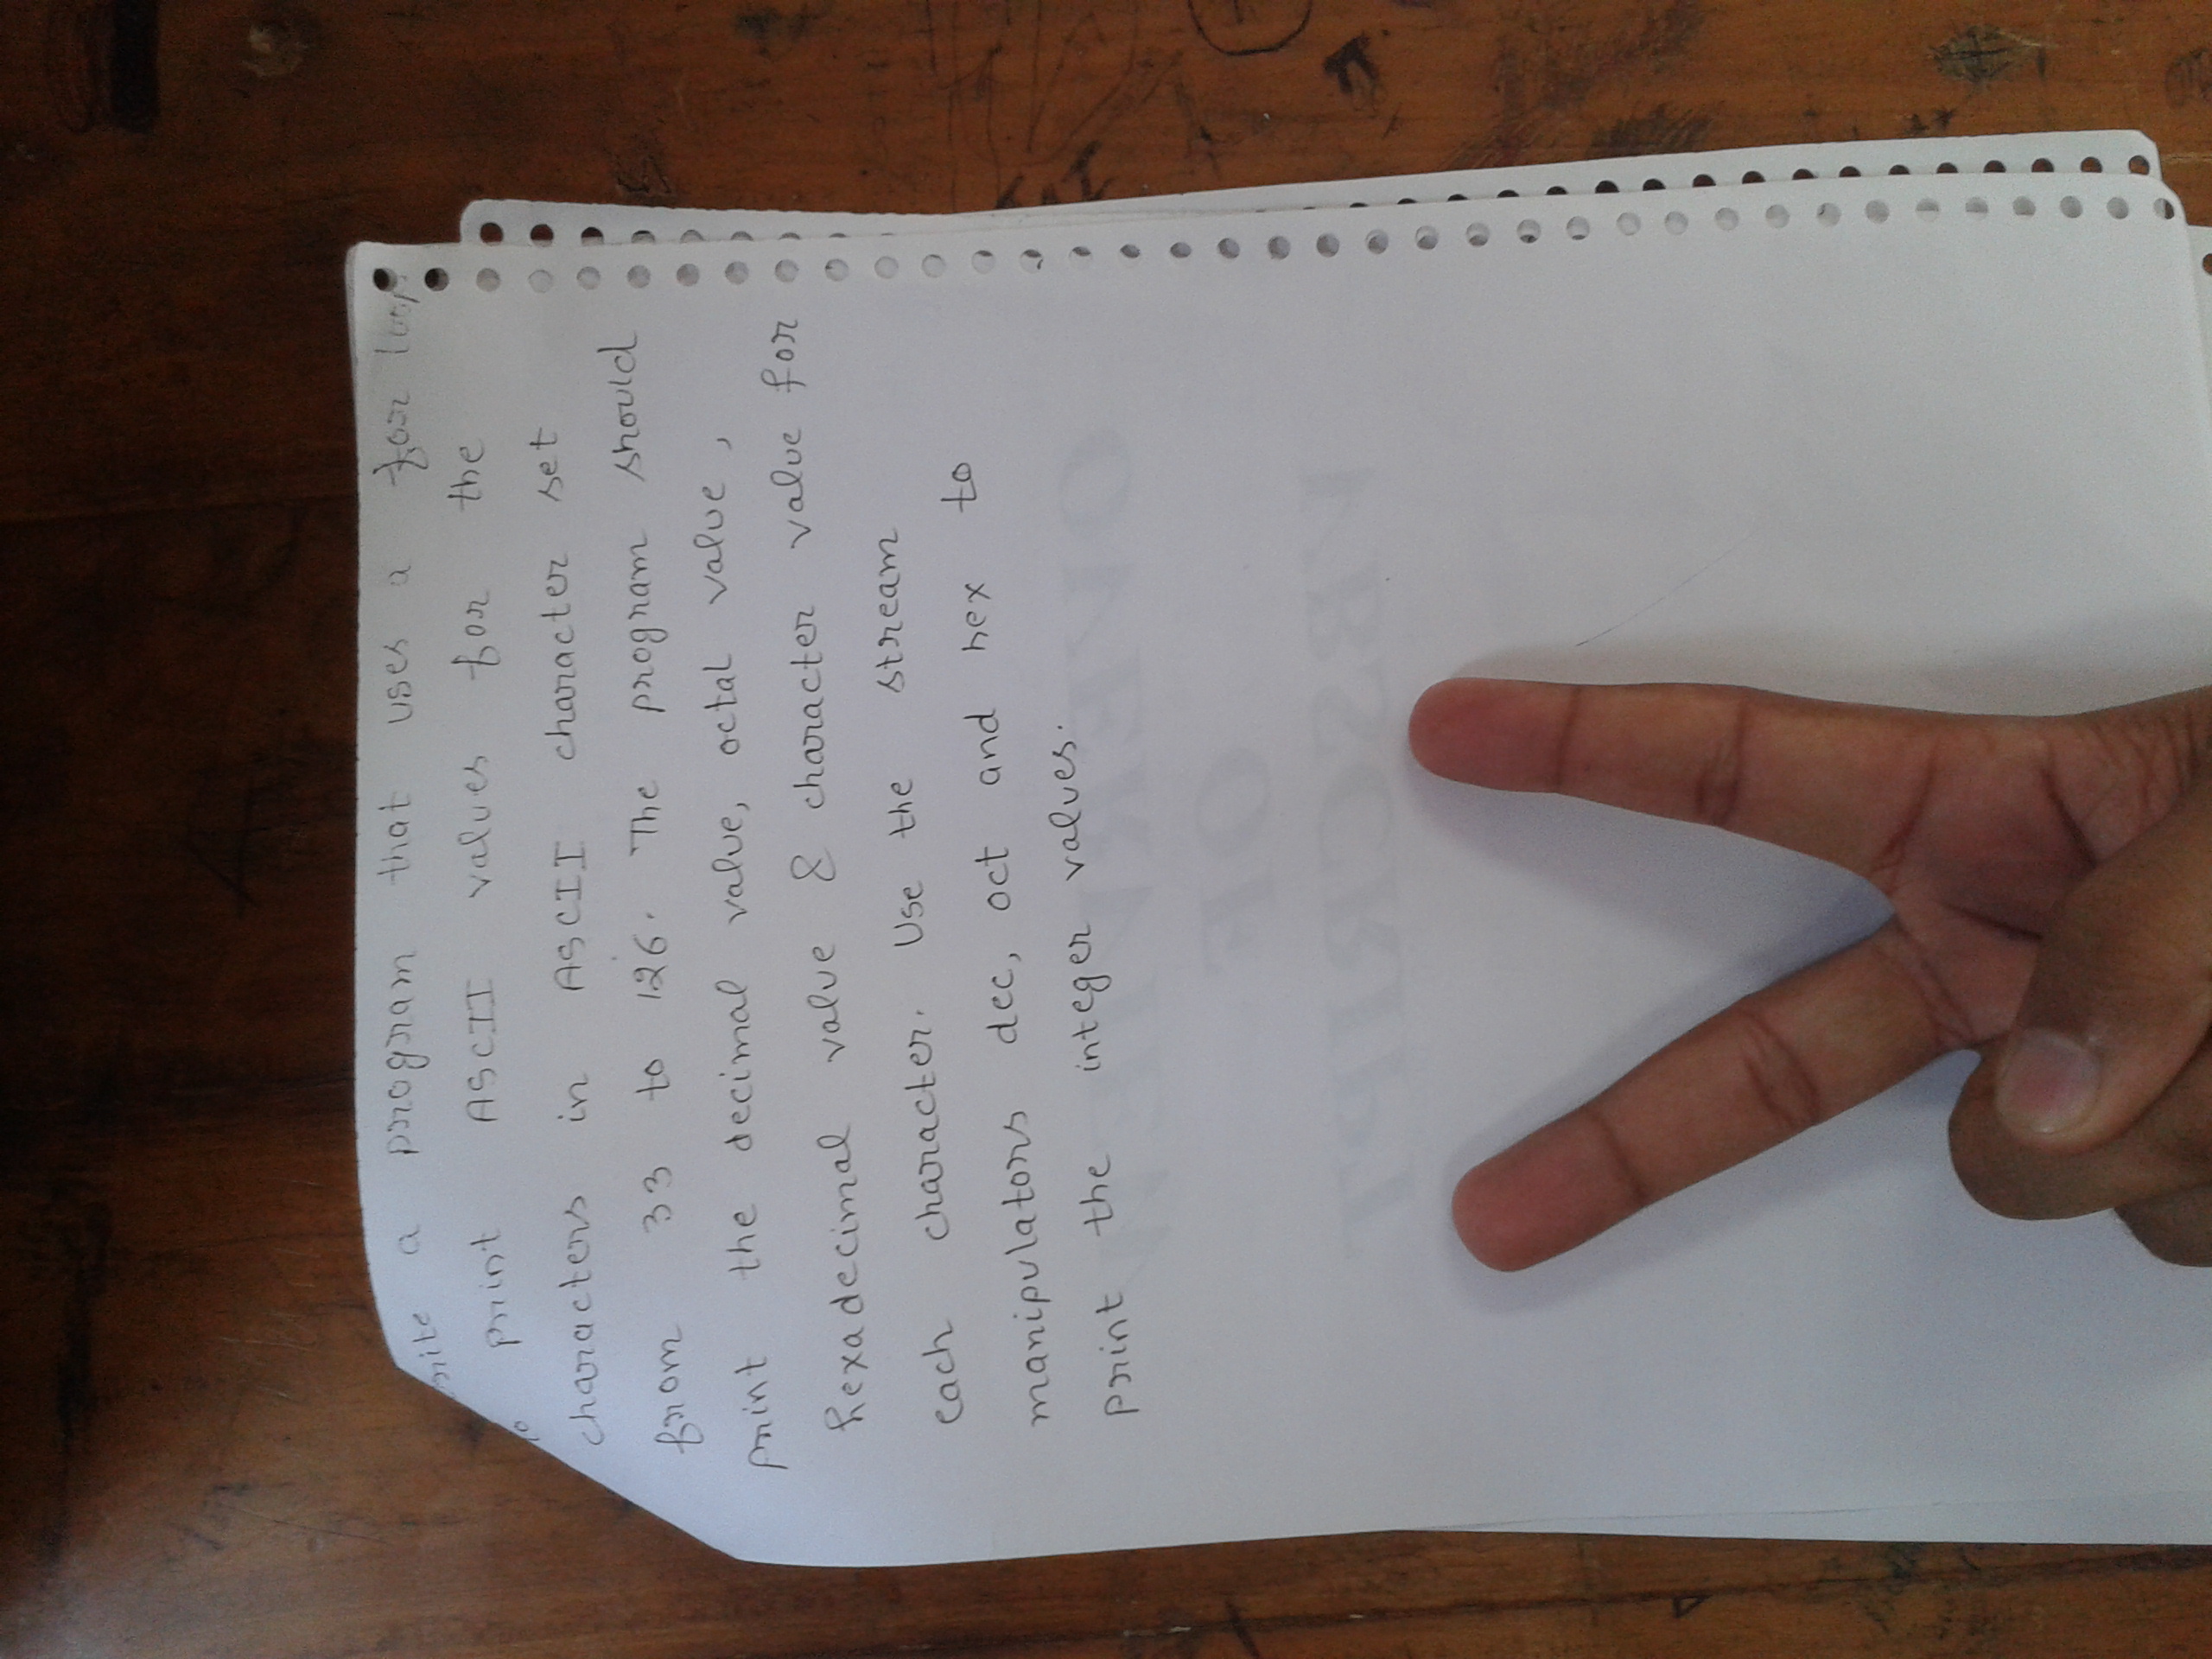 write a program that uses a for loop
to print ASCII values for the
characters in ASCII character set
from 33 to 126. The program should
print the decimal value, octal value,
hexadecimal value & character value for
each character. Use the stream
manipulators dec, oct and hex to
print the integer values.
OVERVIEW
OF
ABSCRIPT